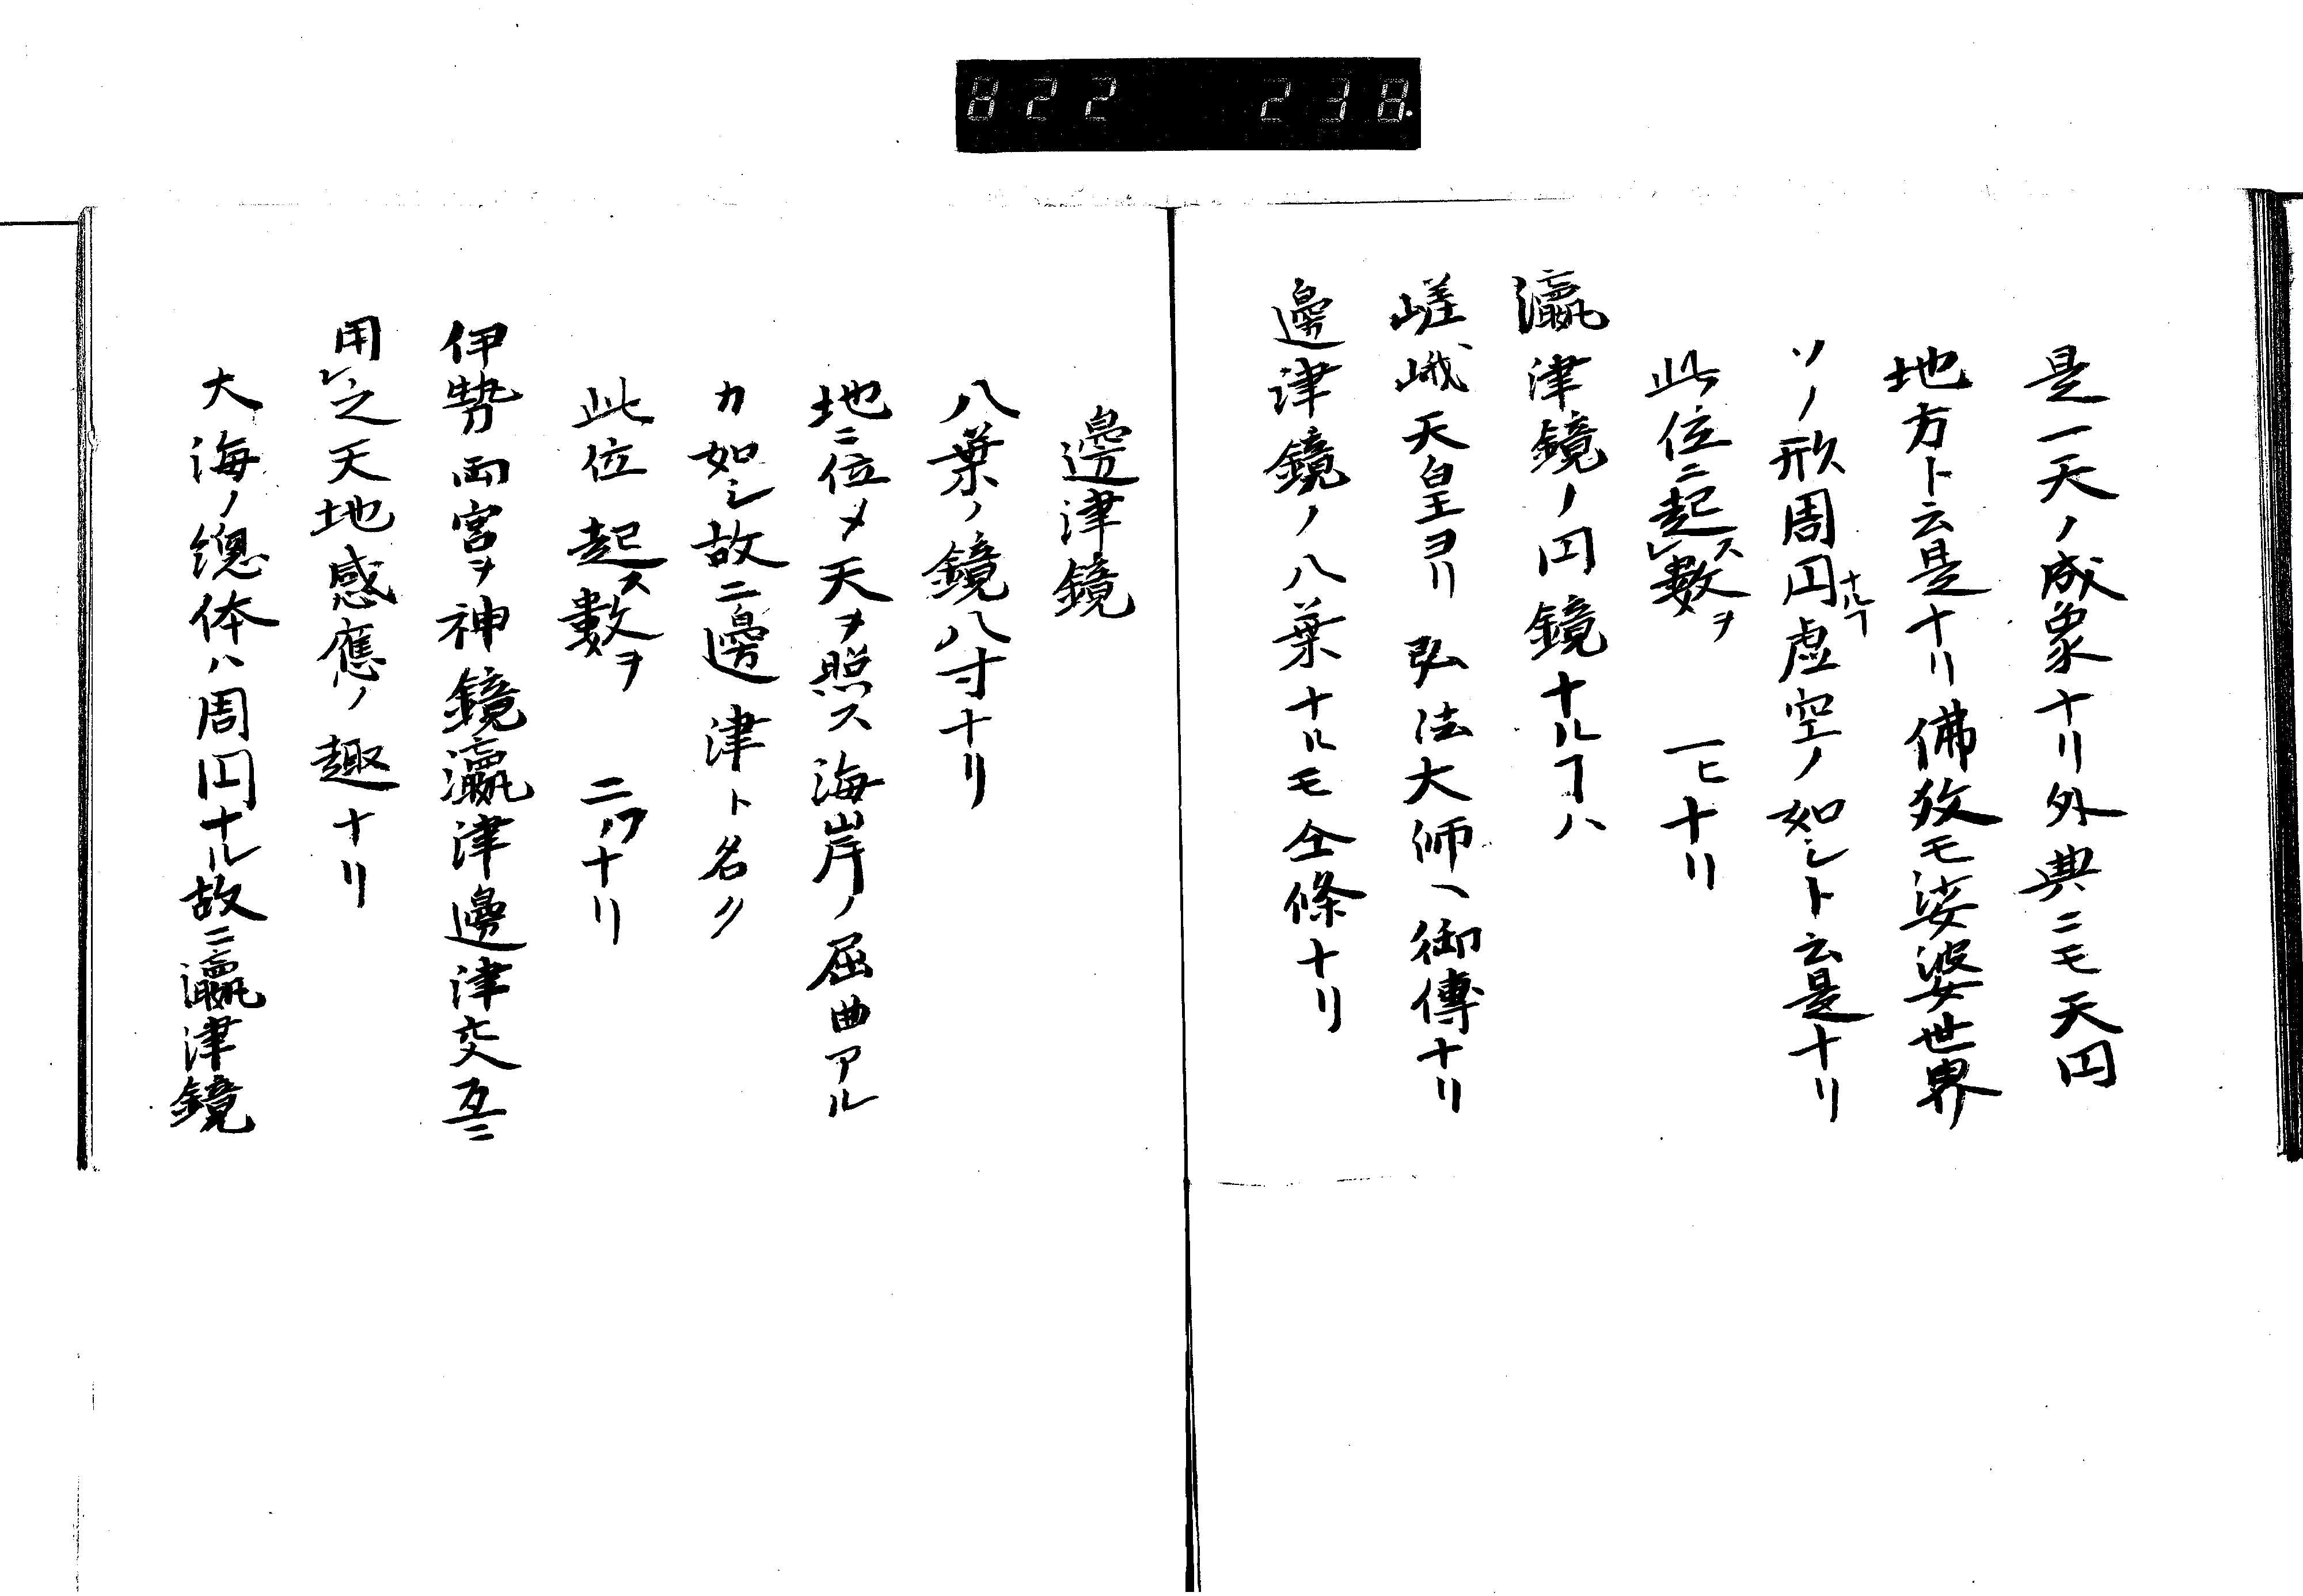 822 238.
是一天ノ成象ナリ外典ニモ天円
地方ト云是ナリ佛教モ娑婆世界
ソノ形周円ナルヿ虚空ノ如シト云是ナリ
此位ニ起レス數ヲ 一ヒナリ
瀛津鏡ノ円鏡ナルヿハ
嵯峨天皇ヨリ 弘法大師ヘ御傳ナリ
邊津鏡ノ八葉ナルモ仝條ナリ
邊津鏡
八葉ノ鏡八寸ナリ
地ニ位メ天ヲ照ス海岸ノ屈曲アル
カ如シ故ニ邊津ト名ク
此位起ス數ヲ 二フナリ
伊勢両宮ヲ神鏡瀛津邊津交互ニ
用レ之天地感應ノ趣ナリ
大海ノ總体ハ周円ナル故ニ瀛津鏡